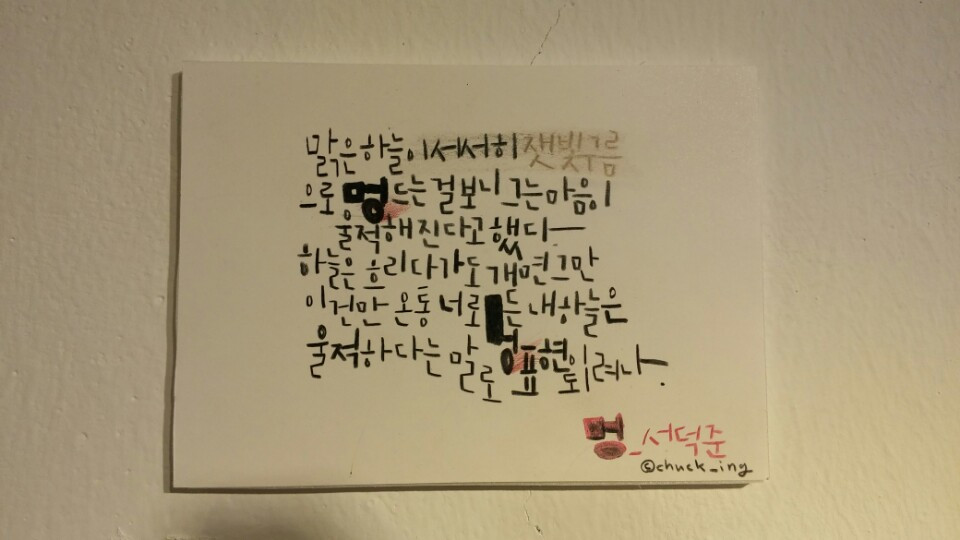 맑은 하늘이 서서히 잿빛구름
으로 멍드는 걸 보니 그는 마음이
울적해진다고 했다—
하늘은 흐리다가도 개면 그만
이건만 온통 너로 멍든 내 하늘은
울적하다는 말로 표현이 되려나—.
멍_서덕준
©chuck_ing